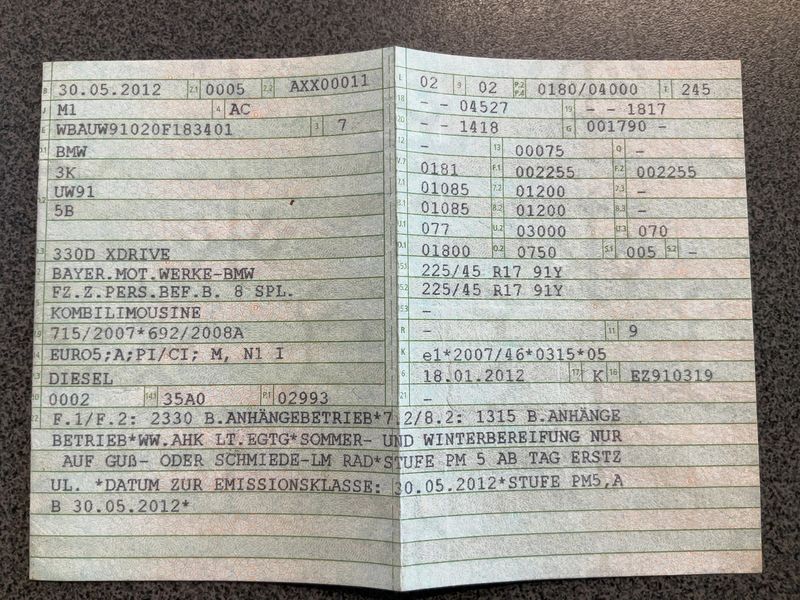 B 30.05.2012 2.1 0005 2.2 AXX00011
J M1 4 AC
E WBAUW91020F183401 3 7
D.1 BMW
3K
UW91
5B
D.3 330D XDRIVE
2 BAYER.MOT.WERKE-BMW
FZ.Z.PERS.BEF.B. 8 SPL.
KOMBILIMOUSINE
715/2007*692/2008A
EURO5;A;PI/CI; M, N1 I
DIESEL
10 0002 14.1 35A0 P.1 02993
22 F.1/F.2: 2330 B.ANHÄNGEBETRIEB*7.2/8.2: 1315 B.ANHÄNGE
BETRIEB*WW.AHK LT.EGTG*SOMMER- UND WINTERBEREIFUNG NUR
AUF GUß- ODER SCHMIEDE-LM RAD*STUFE PM 5 AB TAG ERSTZ
UL. *DATUM ZUR EMISSIONSKLASSE: 30.05.2012*STUFE PM5,A
B 30.05.2012*
L 02 9 02 P.2 P.4 0180/04000 T 245
18 - - 04527 19 - - 1817
20 - - 1418 G 001790 -
12 - 13 00075 Q -
V.7 0181 F.1 002255 F.2 002255
7.1 01085 7.2 01200 7.3 -
8.1 01085 8.2 01200 8.3 -
U.1 077 U.2 03000 U.3 070
O.1 01800 O.2 0750 S.1 005 S.2 -
15.1 225/45 R17 91Y
15.2 225/45 R17 91Y
15.3 -
R - 11 9
K e1*2007/46*0315*05
6 18.01.2012 17 K 16 EZ910319
21 -